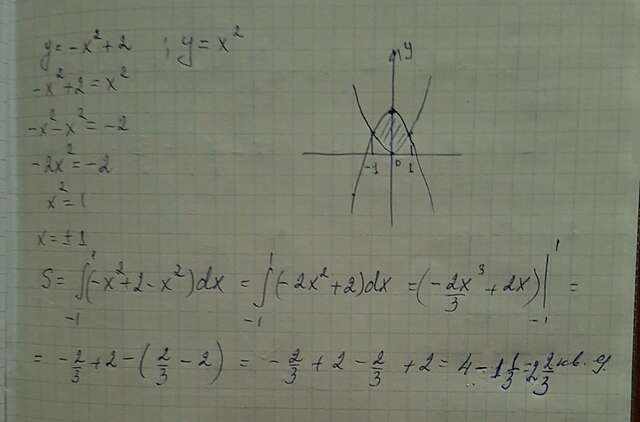 y = -x² + 2 ; y = x²
-x² + 2 = x²
-x² - x² = -2
-2x² = -2
x² = 1
x = ±1
y
-1 0 1
S = ∫₋₁¹ (-x² + 2 - x²) dx = ∫₋₁¹ (-2x² + 2) dx = (-2x³/3 + 2x) |₋₁¹ =
= -2/3 + 2 - (2/3 - 2) = -2/3 + 2 - 2/3 + 2 = 4 - 1 1/3 = 2 2/3 кв. ед.